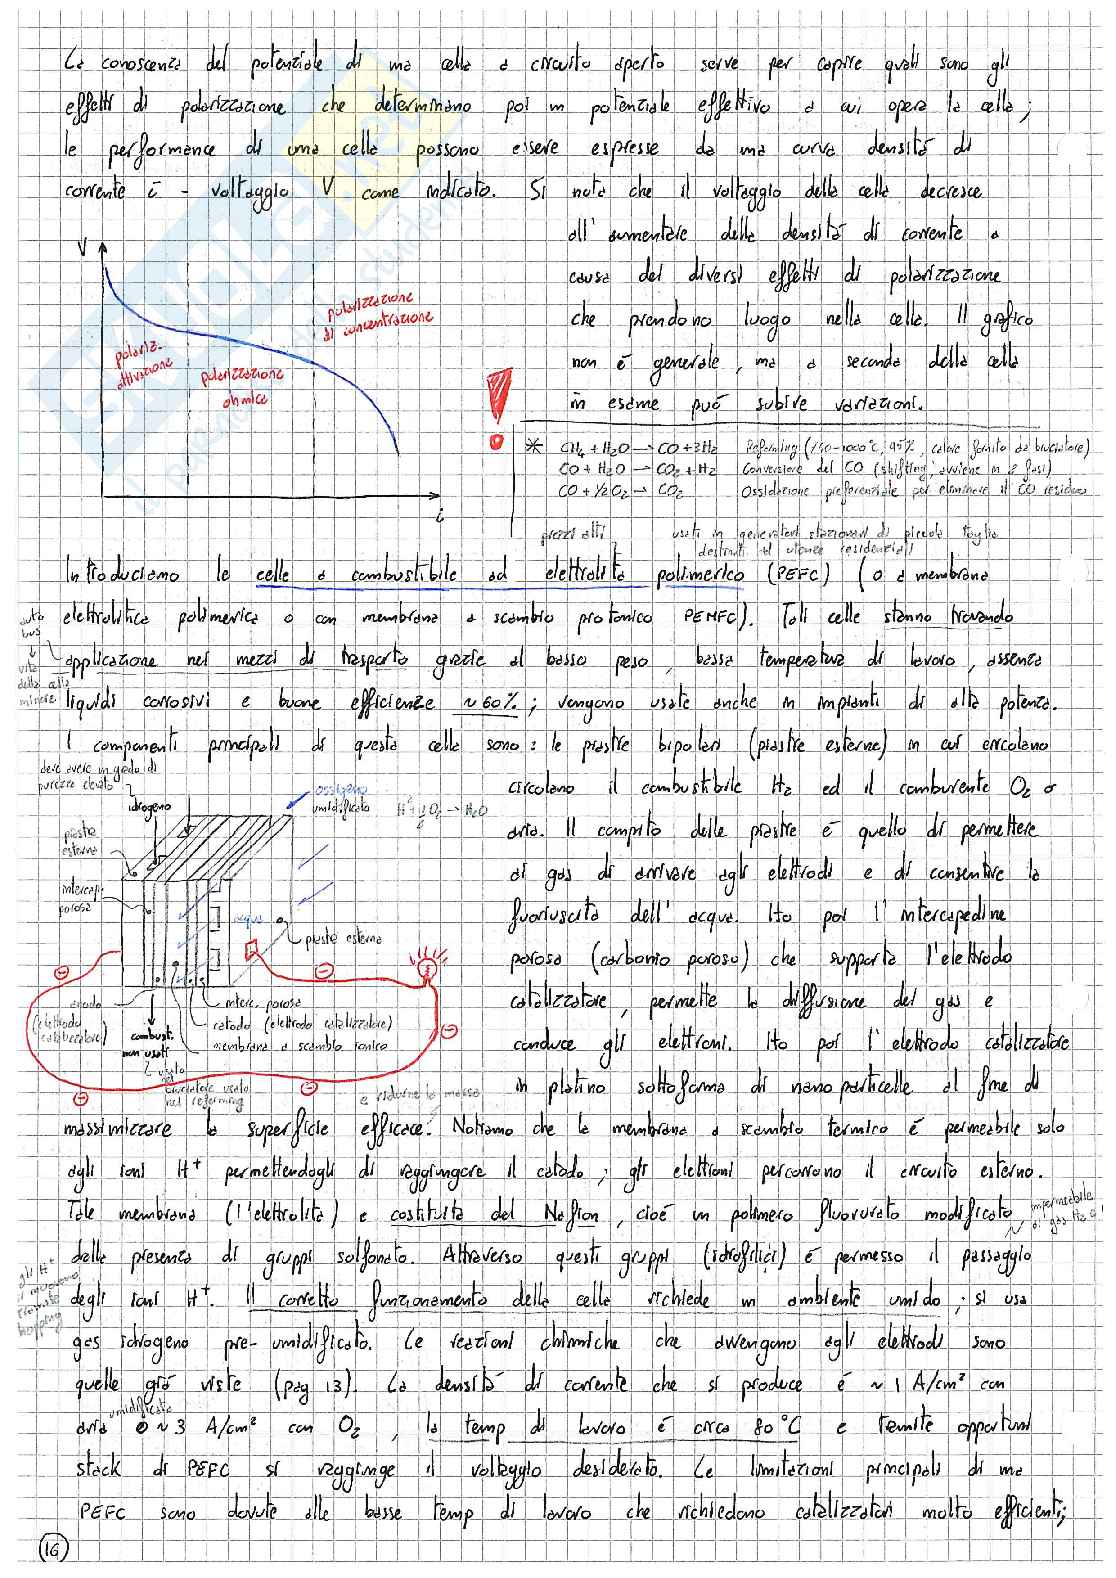 La conoscenza del potenziale di una cella a circuito aperto serve per capire quali sono gli
effetti di polarizzazione che determinano poi un potenziale effettivo a cui opera la cella;
le performance di una cella possono essere espresse da una curva densità di
corrente i - voltaggio V come indicato. Si nota che il voltaggio della cella decresce
all'aumentare della densità di corrente a
causa dei diversi effetti di polarizzazione
che prendono luogo nella cella. Il grafico
non è generale, ma a seconda della cella
in esame può subire variazioni.
V
polariz.
attivazione
polarizzazione
ohmica
polarizzazione
di concentrazione
i
!
* CH4 + H2O → CO + 3H2 Reforming (750-1000°C, 95%, calore fornito da bruciatore)
CO + H2O → CO2 + H2 Conversione del CO (shifting, avviene in 2 fasi)
CO + 1/2 O2 → CO2 Ossidazione preferenziale per eliminare il CO residuo
prezzi alti
usati in generatori stazionari di piccola taglia
destinati ad utenze residenziali
Introduciamo le celle a combustibile ad elettrolita polimerico (PEFC) (o a membrana
elettrolitica polimerica o con membrana a scambio protonico PEMFC). Tali celle stanno trovando
applicazione nei mezzi di trasporto grazie al basso peso, bassa temperatura di lavoro, assenza
liquidi corrosivi e buone efficienze ~60%; vengono usate anche in impianti di alta potenza.
auto
bus
↓
vita
della cella
minore
I componenti principali di questa cella sono: le piastre bipolari (piastre esterne) in cui circolano
circolano il combustibile H2 ed il comburente O2 o
aria. Il compito delle piastre è quello di permettere
ai gas di arrivare agli elettrodi e di consentire la
fuoriuscita dell'acqua. Ho poi l'intercapedine
porosa (carbonio poroso) che supporta l'elettrodo
catalizzatore, permette la diffusione dei gas e
conduce gli elettroni. Ho poi l'elettrodo catalizzatore
in platino sottoforma di nano particelle al fine di
deve avere un grado di
purezza elevato
idrogeno
ossigeno
umidificato
H2 + 1/2 O2 → H2O
piastra
esterna
intercap.
porosa
acqua
piastra esterna
anodo
(elettrodo
catalizzatore)
combust.
non usati
interc. porosa
catodo (elettrodo catalizzatore)
membrana a scambio ionico
usato
nel
bruciatore usato
nel reforming
e ridurne la massa
massimizzare la superficie efficace. Notiamo che la membrana a scambio termico è permeabile solo
agli ioni H+ permettendogli di raggiungere il catodo; gli elettroni percorrono il circuito esterno.
Tale membrana (l'elettrolita) è costituita dal Nafion, cioè un polimero fluorurato modificato
impermeabile
ai gas
dalla presenza di gruppi solfonato. Attraverso questi gruppi (idrofilici) è permesso il passaggio
degli ioni H+. Il corretto funzionamento della cella richiede un ambiente umido; si usa
gli H+
si muovono
tramite
hopping
gas idrogeno pre-umidificato. Le reazioni chimiche che avvengono agli elettrodi sono
quelle già viste (pag 13). La densità di corrente che si produce è ~1 A/cm² con
umidificata
aria e ~3 A/cm² con O2, la temp di lavoro è circa 80°C e tramite opportuni
stack di PEFC si raggiunge il voltaggio desiderato. Le limitazioni principali di una
PEFC sono dovute alle basse temp di lavoro che richiedono catalizzatori molto efficienti;
16